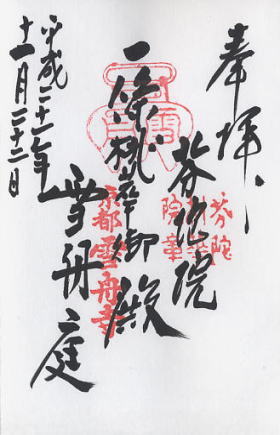 奉拝
芬陀院
一條桃華御殿
雪舟庭
平成二十一年
十一月二十二日
芬陀
利華
院章
京都雪舟寺